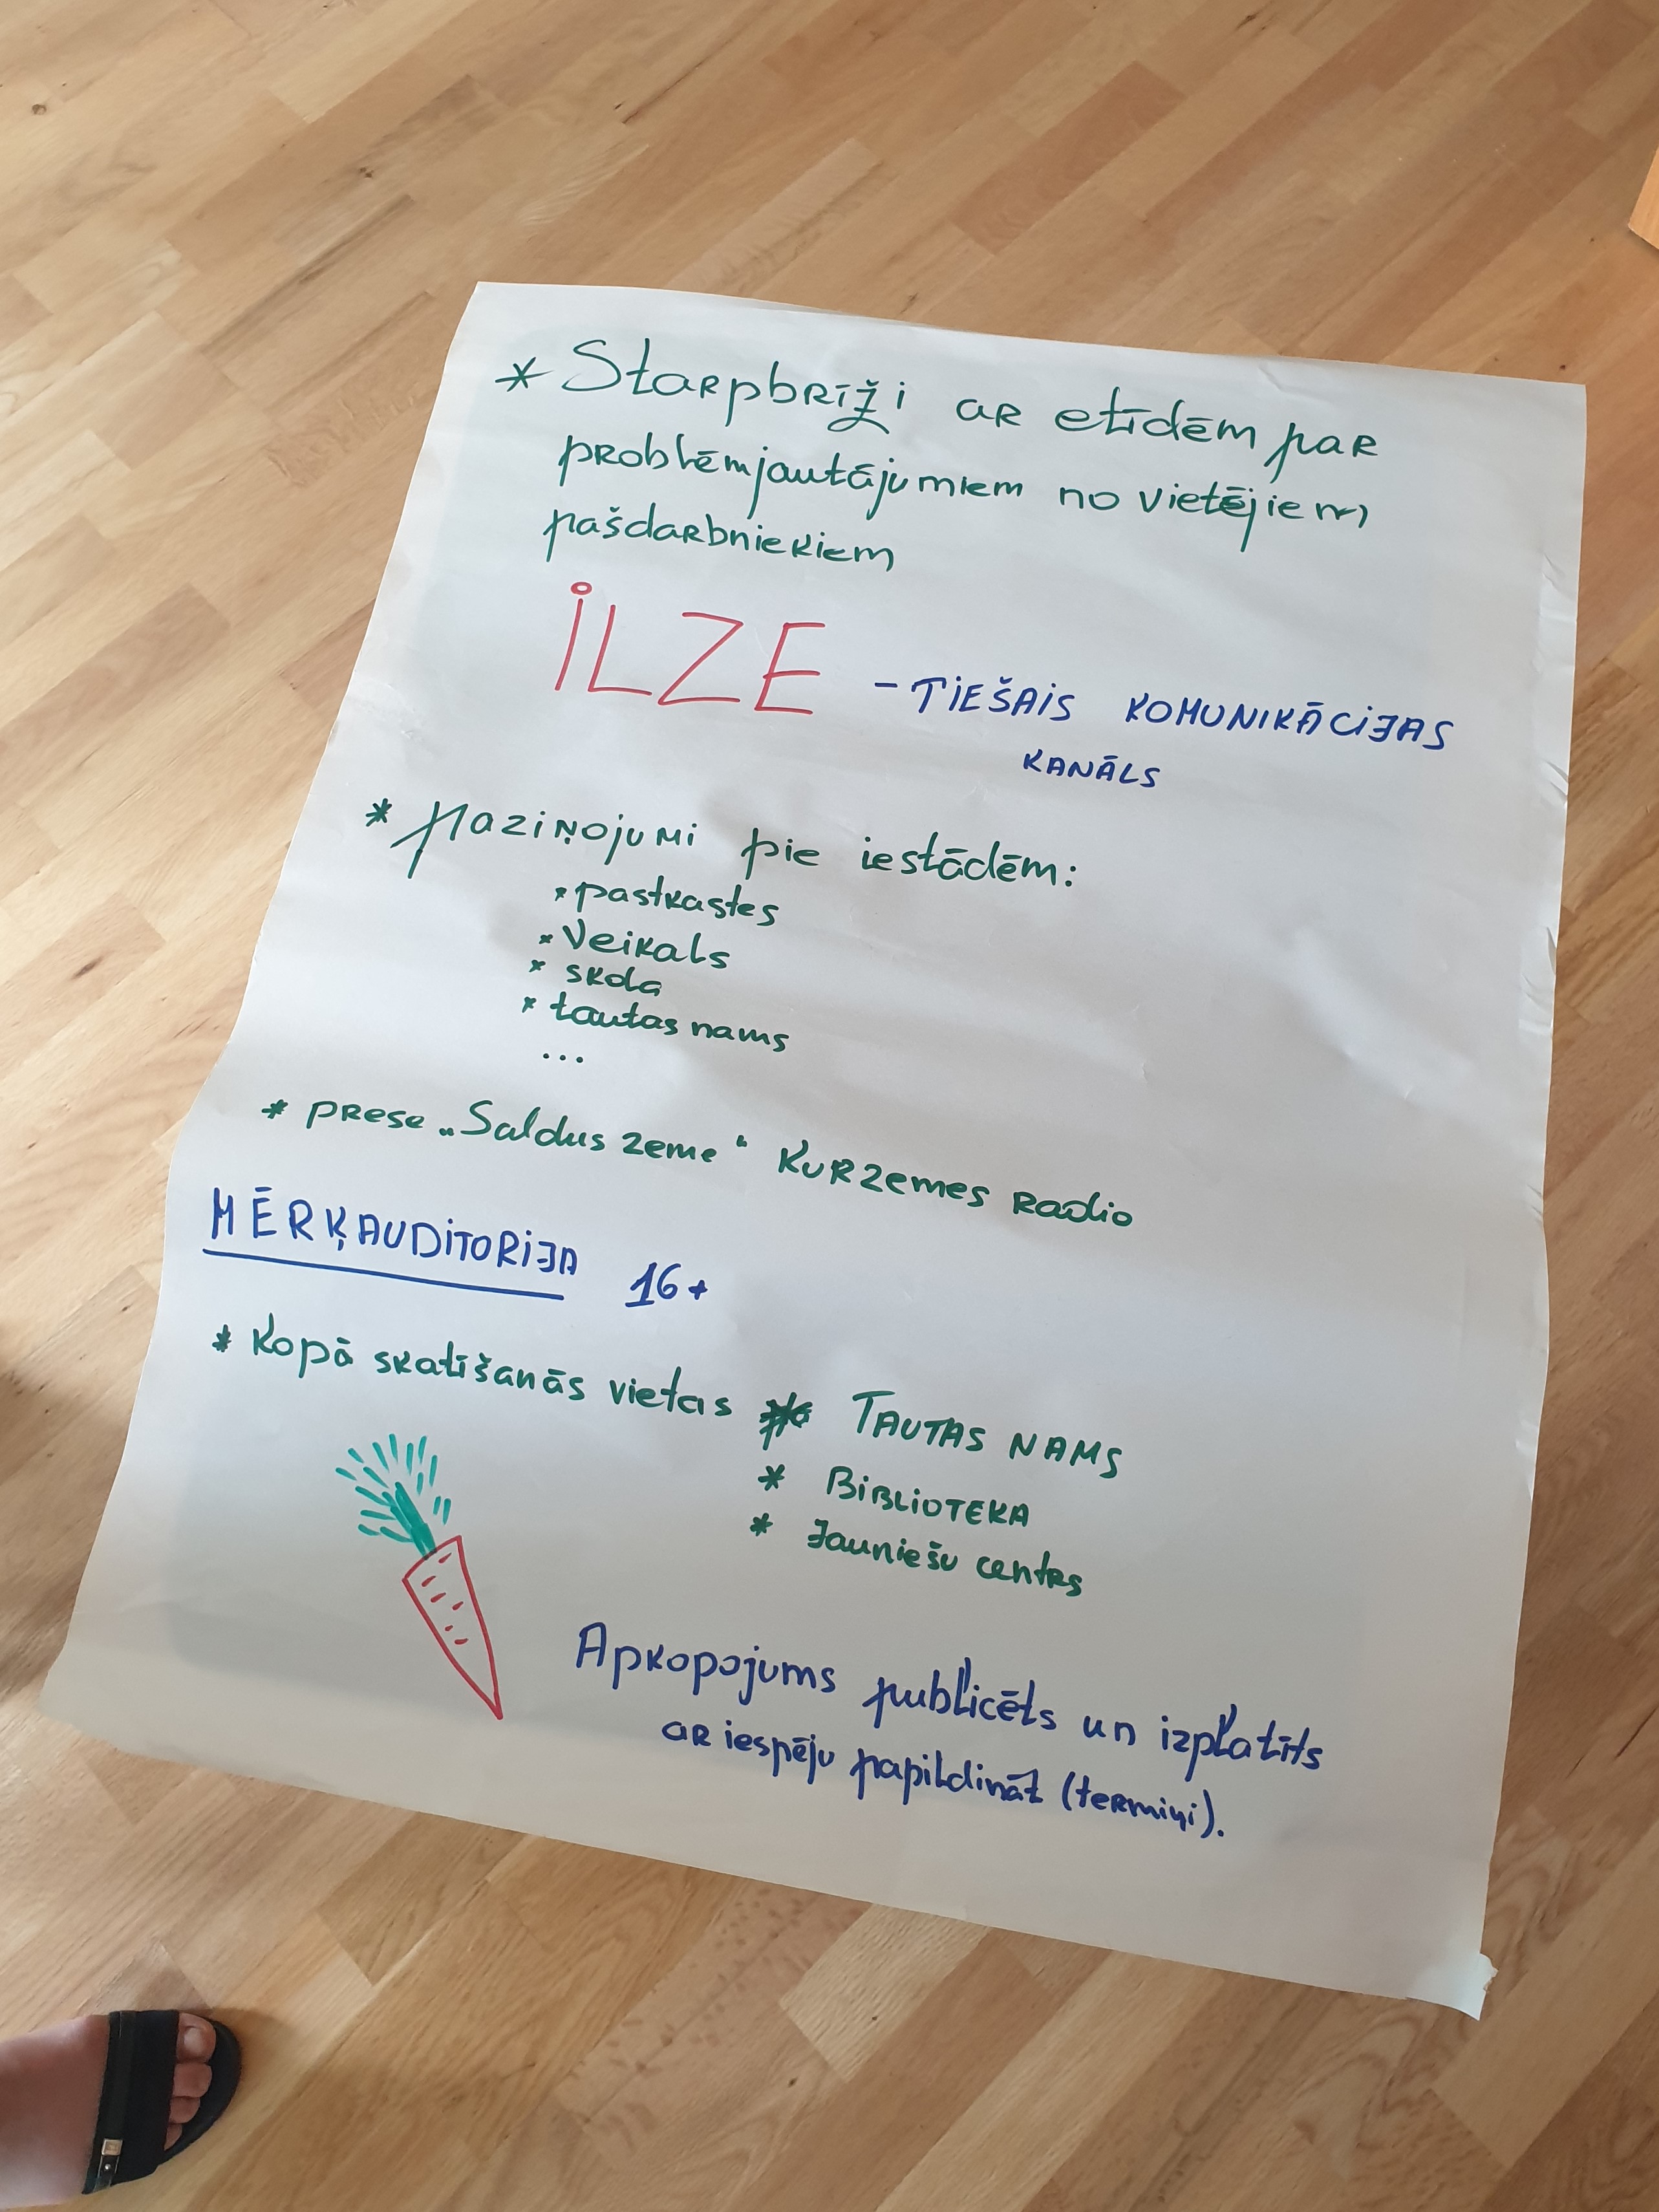 * Starpbrīži ar etīdēm par
problēmjautājumiem no vietējiem
pašdarbniekiem
ILZE - TIEŠAIS KOMUNIKĀCIJAS
KANĀLS
* paziņojumi pie iestādēm:
* pastkastes
* Veikals
* skola
* tautas nams
...
* prese „Saldus zeme“ Kurzemes Radio
MĒRĶAUDITORIJA 16+
* Kopā skatīšanās vietas * TAUTAS NAMS
* BIBLIOTEKA
* Jauniešu centrs
Apkopojums publicēts un izplatīts
ar iespēju papildināt (termiņi).